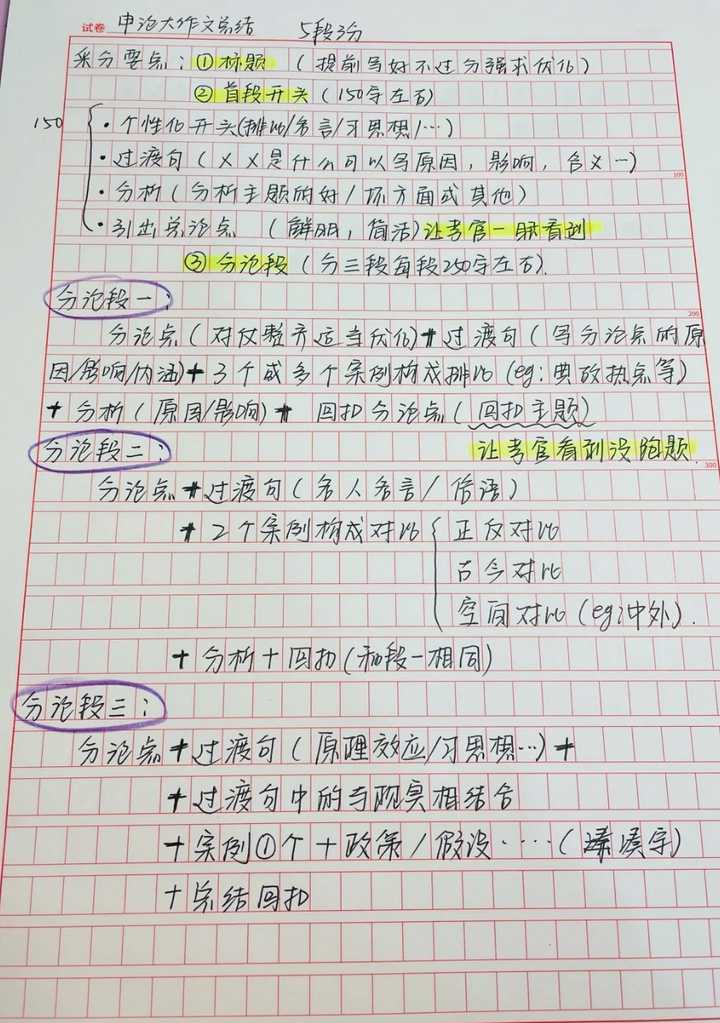 试卷 申论大作文总结 5段3分
采分要点：①标题（提前写好不过分强求优化）
②首段开头（150字左右）
150
・个性化开头(排比/名言/习思想/…)
・过渡句（××是什么可以写原因，影响，含义…)
・分析（分析主题的好/坏方面或其他）
100
・引出总论点（鲜明，简洁)让考官一眼看到
③分论段（分三段每段250字左右).
分论段一：
200
分论点（对仗整齐适当优化)+过渡句（写分论点的原
因/影响/内涵)+3个或多个案例构成排比(eg:典故热点等)
+分析（原因/影响）+ 回扣分论点（回扣主题)
分论段二： 让考官看到没跑题.
300
分论点+过渡句（名人名言/俗语）
+2个案例构成对比{正反对比
古今对比
空间对比（eg:中外).
+分析+回扣(和段一相同)
分论段三：
分论点+过渡句（原理效应/习思想…)+
+过渡句中的与现实相结合
+案例①个+政策/假设····（凑字)
+总结回扣